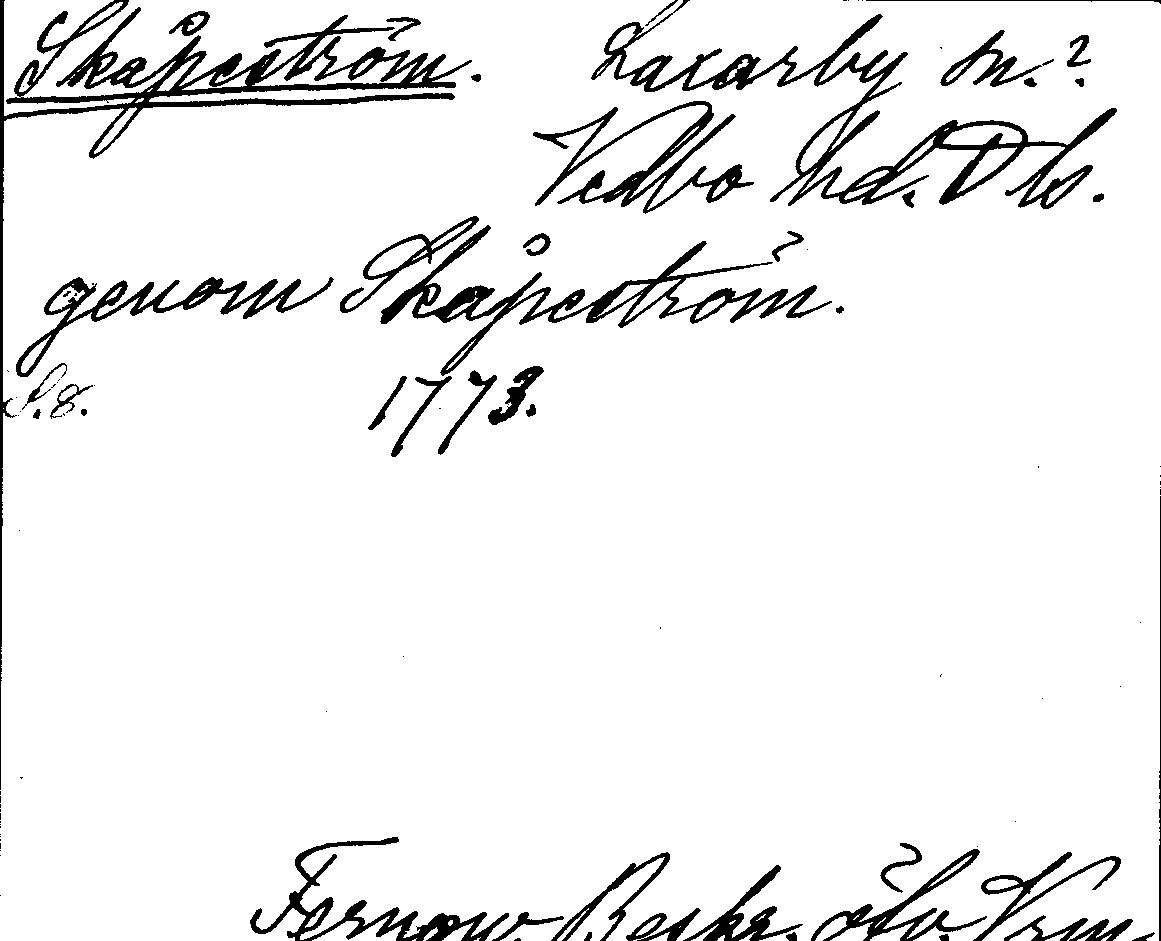 Skåpeström. Laxarby sn.?
Vedbo hd. Dls.
genom Skåpeström.
S. 8. 1773.
Fernow. Beskr. öfv. Vrm.